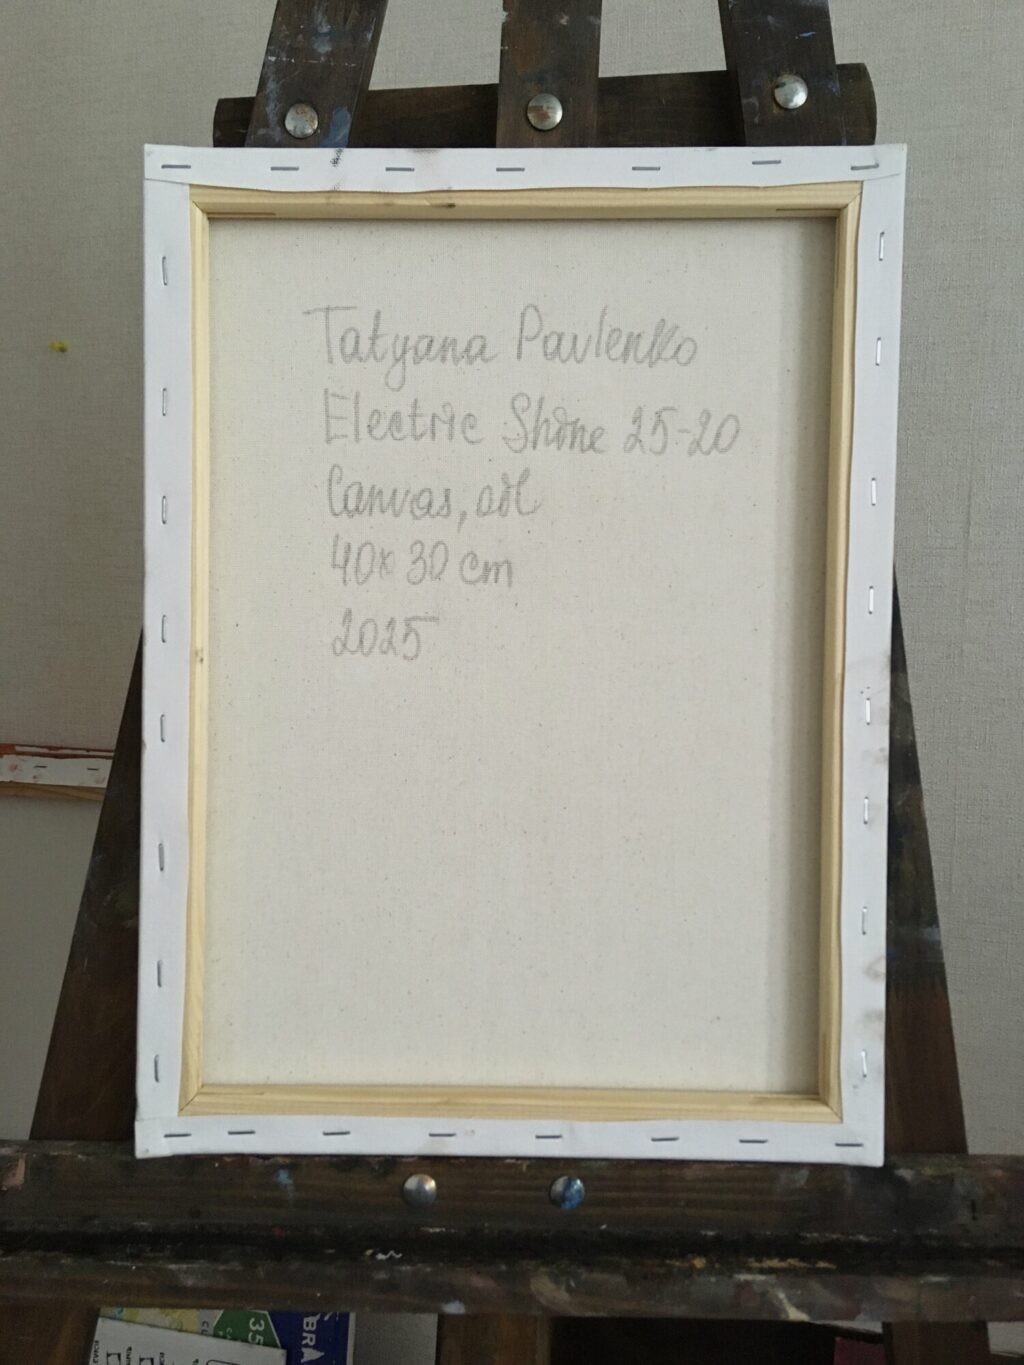 Tatyana Pavlenko
Electric Shine 25-20
Canvas, oil
40x30 cm
2025
35
BRA